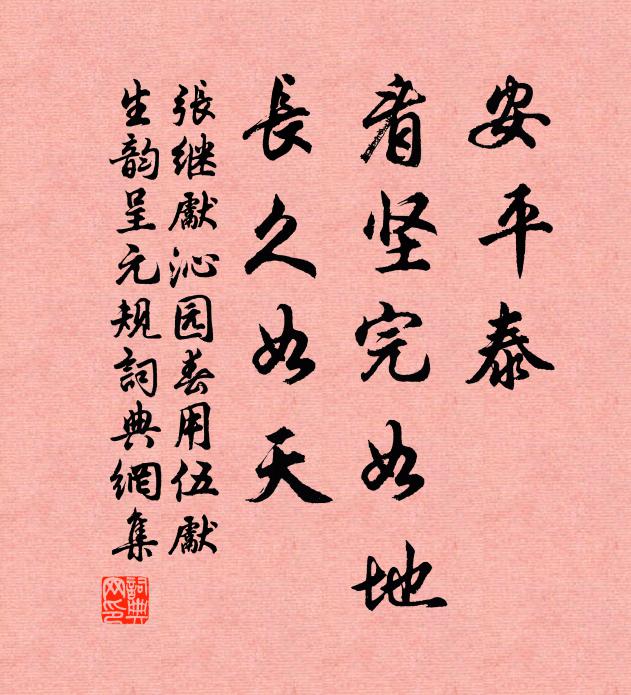 安平泰
看坚完如地
長久如天
張继獻沁园春用伍獻
生韵呈元规詞典網集
詞典网印